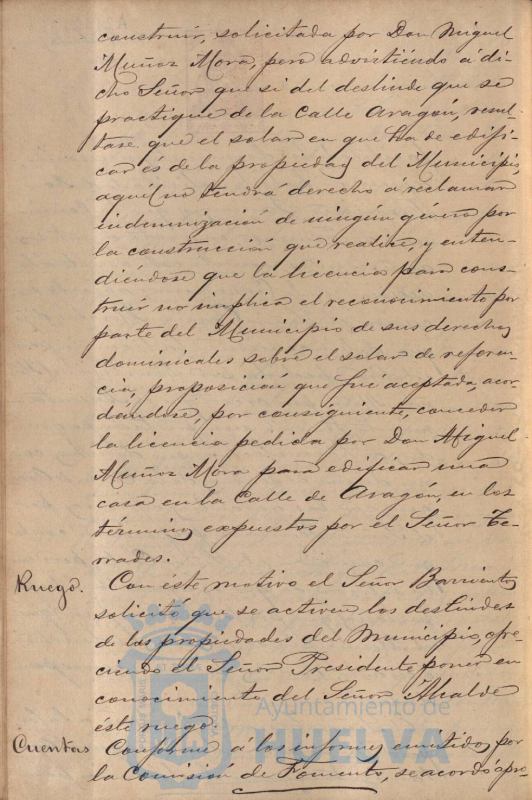 construir, solicitada por Don Miguel
Muñoz Mora, pero advirtiéndo á di-
cho Señor que si del deslinde que se
practique de la calle Aragón, resul-
tase que el solar en que ha de edifi-
car és de la propiedad del Municipio,
aquél no tendrá derecho á reclamar
indemnización de ningún género por
la construcción que realice, y enten-
diéndose que la licencia para cons-
truir no implica el reconocimiento por
parte del Municipio de sus derechos
dominicales sobre el solar de referen-
cia, proposición que fué aceptada, acor-
dándose, por consiguiente, conceder
la licencia pedida por Don Miguel
Muñoz Mora para edificar una
casa en la Calle de Aragón, en los
términos expuestos por el Señor Te-
rrades.
Ruego. Con éste motivo el Señor Barrientos
solicitó que se activen los deslindes
de las propiedades del Municipio, ofre-
ciendo el Señor Presidente poner en
conocimiento del Señor Alcalde
éste ruego.
Cuentas Conforme á los informes emitidos por
la Comisión de Fomento, se acordó apro-
Ayuntamiento de
HUELVA